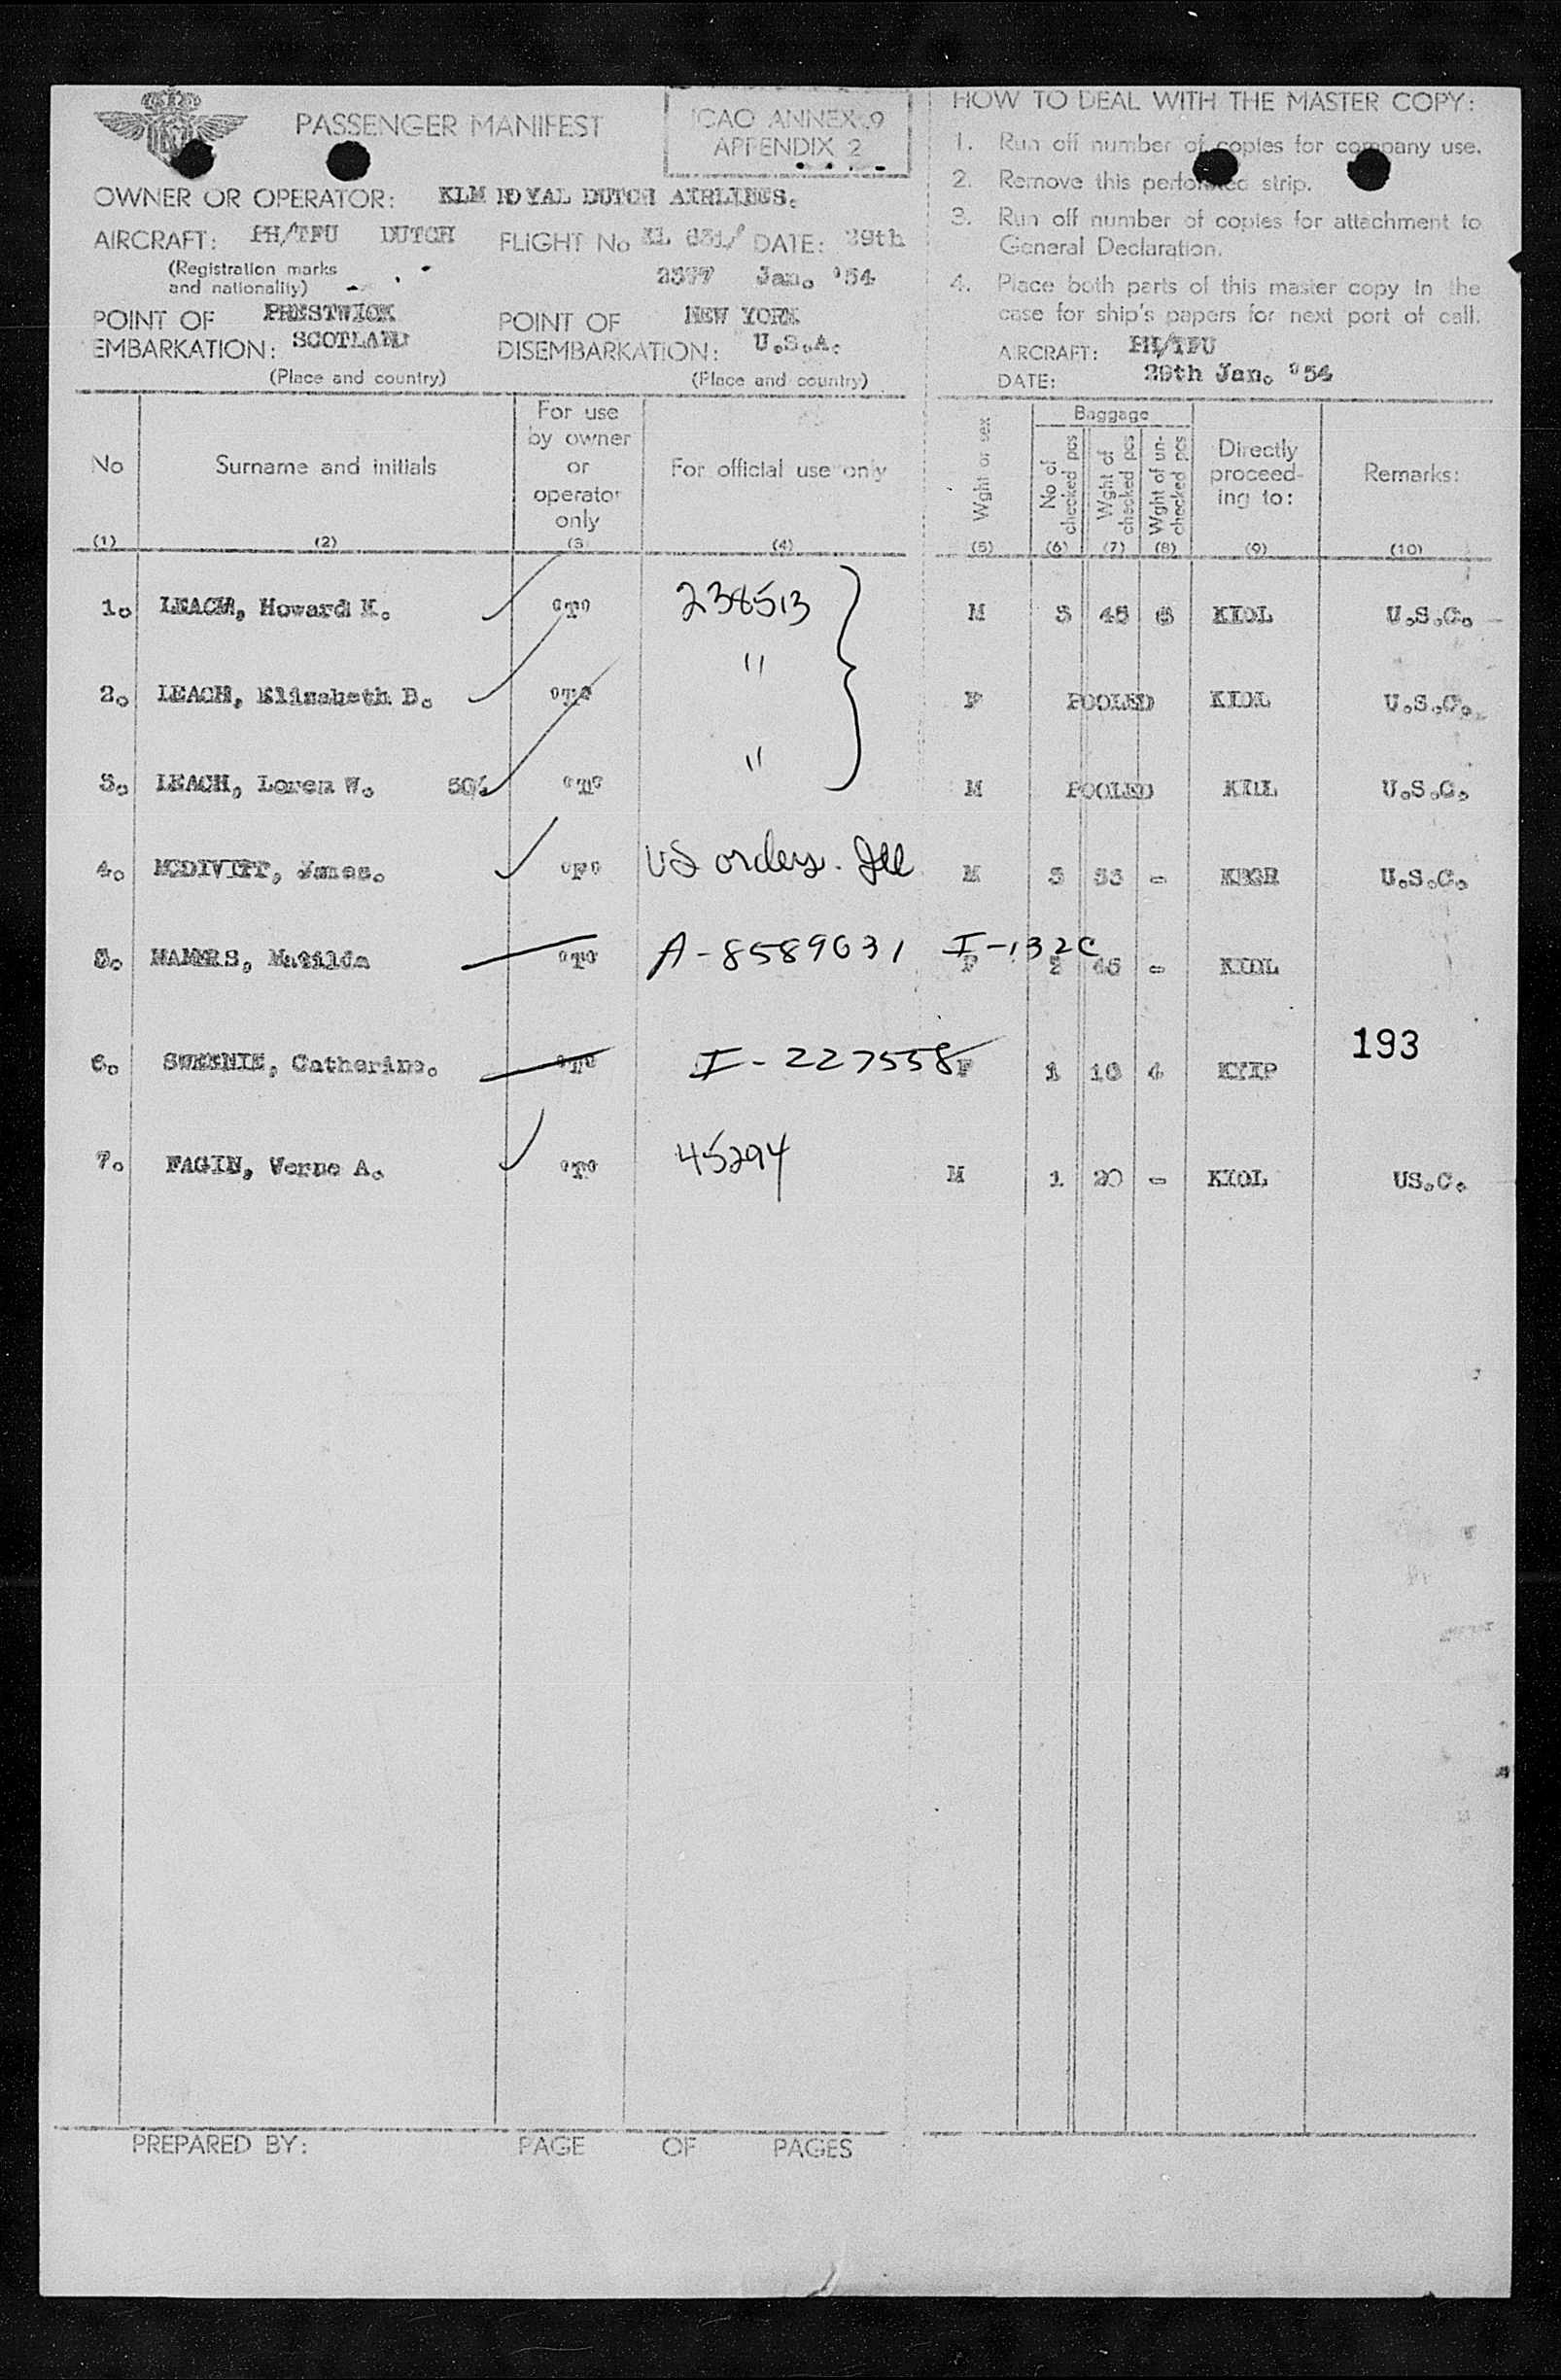 PASSENGER MANIFEST
ICAO ANNEX 9
APPENDIX 2
OWNER OR OPERATOR: KLM ROYAL DUTCH AIRLINES.
AIRCRAFT: PH/TFU DUTCH FLIGHT No KL 631/ DATE: 29th
(Registration marks and nationality) Jan. '54
POINT OF EMBARKATION: PRESTWICK SCOTLAND
(Place and country)
POINT OF DISEMBARKATION: NEW YORK U.S.A.
(Place and country)
HOW TO DEAL WITH THE MASTER COPY:
1. Run off number of copies for company use.
2. Remove this perforated strip.
3. Run off number of copies for attachment to
General Declaration.
4. Place both parts of this master copy in the
case for ship's papers for next port of call.
AIRCRAFT: PH/TFU
DATE: 29th Jan. '54
No Surname and initials For use by owner or operator only For official use only Wght or sex Baggage No of checked pcs Wght of checked pcs Wght of un-checked pcs Directly proceed-ing to: Remarks:
(1) (2) (3) (4) (5) (6) (7) (8) (9) (10)
1. LEACH, Howard K. 'T' 238513 M 3 45 6 KIDL U.S.C.
2. LEACH, Elizabeth B. 'T' " F POOLED KIDL U.S.C.
3. LEACH, Loren W. 50% 'T' " M POOLED KIDL U.S.C.
4. MCDIVITT, James. 'F' US orders. M 3 33 - U.S.C.
5. Matilda 'T' A-8589631 I-132C F 2 45 - KIDL
6. SWEENIE, Catherine. 'T' I-227558 F 1 10 4 KYIP
193
7. FAGIN, Verne A. 'T' 45294 M 1 20 - KIDL US.C.
PREPARED BY: PAGE OF PAGES